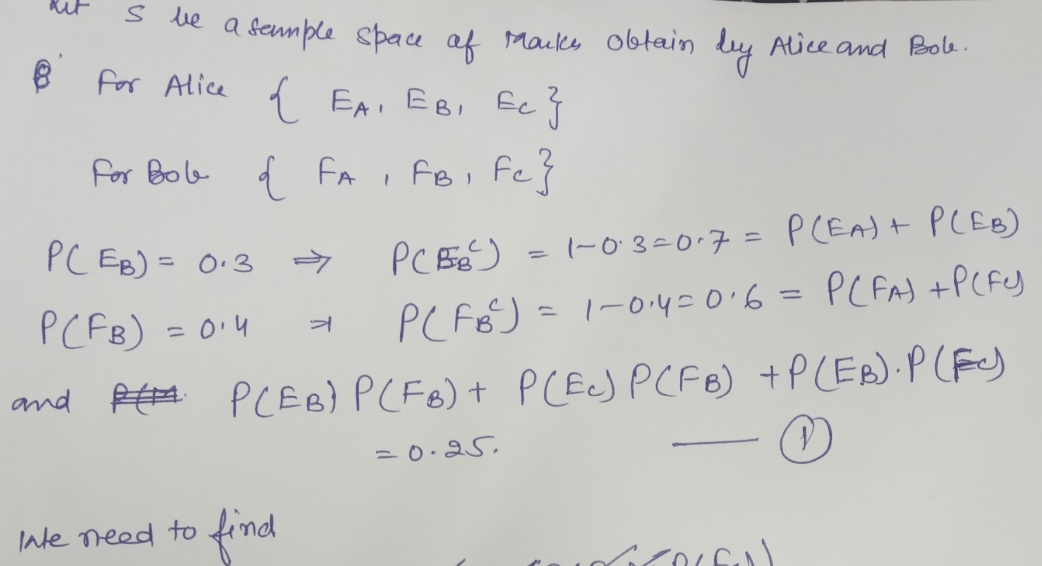 Let S be a sample space of Marks obtain by Alice and Bob.
For Alice { EA, EB, Ec }
For Bob { FA, FB, Fc }
P(EB) = 0.3 ⇒ P(EB^C) = 1-0.3=0.7 = P(EA) + P(EB)
P(FB) = 0.4 ⇒ P(FB^C) = 1-0.4=0.6 = P(FA) + P(Fc)
and P(EB) P(FB) + P(Ec) P(FB) + P(EB).P(Fc)
= 0.25. — ①
We need to find